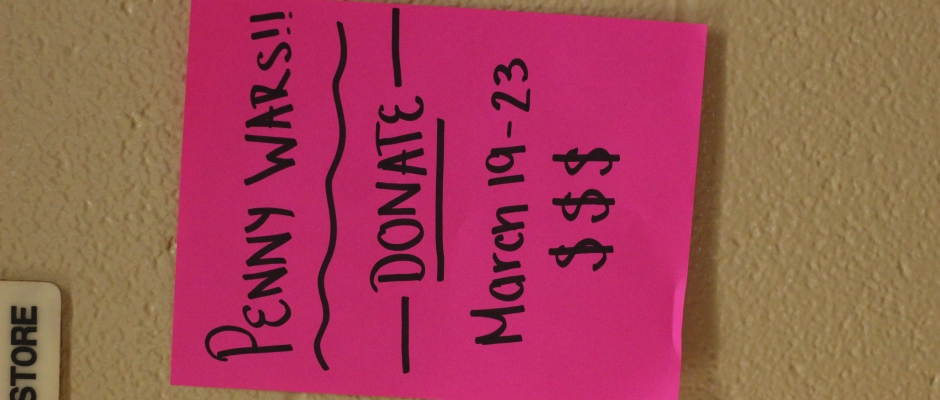 PENNY WARS!!
— DONATE —
March 19-23
$ $ $
STORE